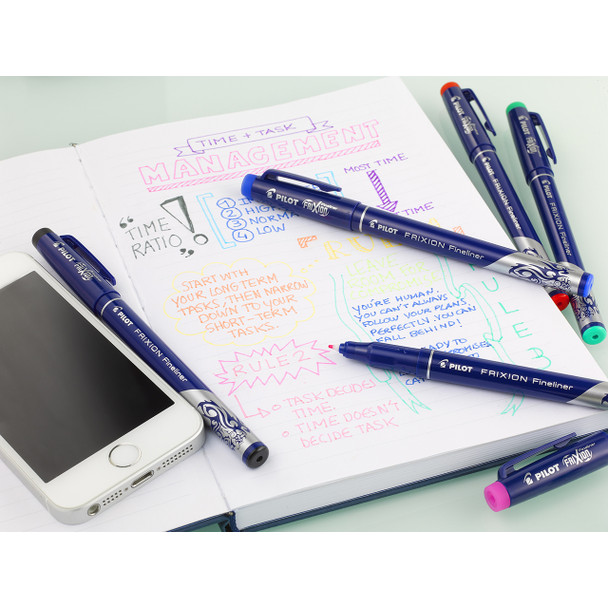 TIME + TASK
MANAGEMENT
MOST TIME
"TIME
RATIO"
!
1
2 HIGH
3 NORMAL
4 LOW
TIME
START WITH
YOUR LONG TERM
TASKS, THEN NARROW
DOWN TO YOUR
SHORT-TERM
TASKS.
YOU'RE HUMAN,
YOU CAN'T ALWAYS
FOLLOW YOUR PLANS
PERFECTLY. YOU CAN
FALL BEHIND!
READY TO
RULE 2
RULE 3
• TASK DECIDES
TIME.
• TIME DOESN'T
DECIDE TASK
PILOT FRIXION
PILOT FRIXION Fineliner
PILOT FRIXION Fineliner
FRIXION
PILOT FRIXION Fineliner
PILOT FRIXION
PILOT FRIXION Fineliner
PILOT FRIXION
PILOT FRIXION Fineliner
PILOT FRIXION